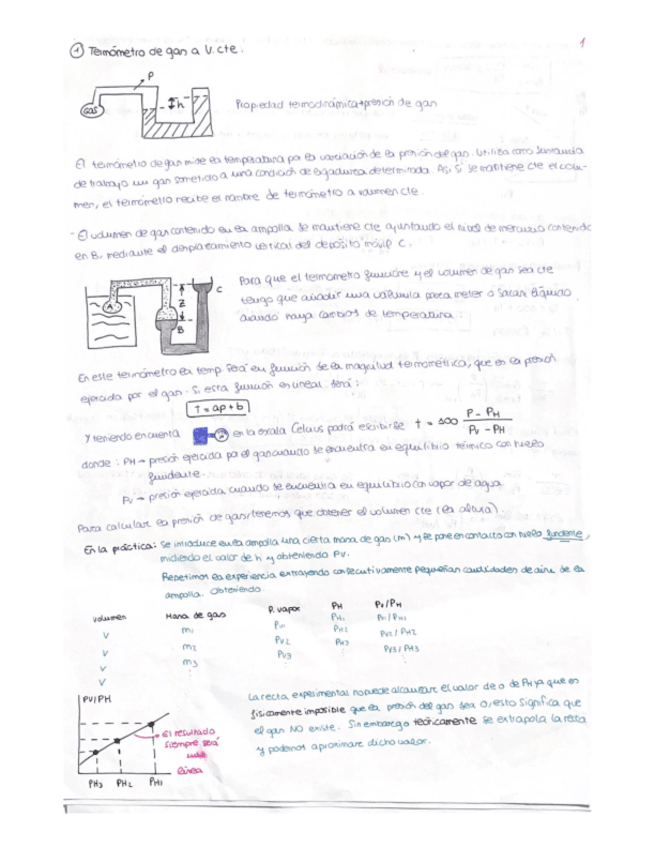 1
① Termómetro de gan a V. cte.
P
GAS
h
Propiedad termodinámica → presión de gan
El termómetro de gan mide la temperatura por la variación de la presión del gan. Utiliza como sustancia
de trabajo un gan sometido a una condición de ligadura determinada. Así, si se mantiene cte el volu-
men, el termómetro recibe el nombre de termómetro a volumen cte.
- El volumen de gan contenido en la ampolla se mantiene cte ajustando el nivel de mercurio contenido
en B, mediante el desplazamiento vertical del depósito móvil C.
A
Z
B
C
Para que el termómetro funcione y el volumen de gan sea cte
tengo que añadir una válvula para meter o sacar líquido
cuando haya cambios de temperatura.
En este termómetro la temp será en función de la magnitud termométrica, que es la presión
ejercida por el gan. Si esta función es lineal será:
t = ap + b
Y teniendo en cuenta en la escala Celsius podrá escribirse t = 100 P - PH / Pv - PH
donde: PH → presión ejercida por el gan cuando se encuentra en equilibrio térmico con hielo
fundente.
Pv → presión ejercida cuando se encuentra en equilibrio con vapor de agua.
Para calcular la presión de gas, tenemos que obtener el volumen cte (la altura).
En la práctica: Se introduce en la ampolla una cierta masa de gan (m) y se pone en contacto con hielo fundente,
midiendo el valor de h y obteniendo PV.
Repetimos la experiencia extrayendo consecutivamente pequeñas cantidades de aire de la
ampolla. Obteniendo
volumen Masa de gas P. vapor PH Pv/PH
V m1 Pv1 PH1 Pv1/PH1
V m2 Pv2 PH2 Pv2/PH2
V m3 Pv3 PH3 Pv3/PH3
V
PV/PH
El resultado
siempre será
una
línea
PH3 PH2 PH1
La recta experimental no puede alcanzar el valor de 0 de PH ya que es
físicamente imposible que la presión del gas sea 0, esto significa que
el gan NO existe. Sin embargo teóricamente se extrapola la recta
y podemos aproximar dicho valor.